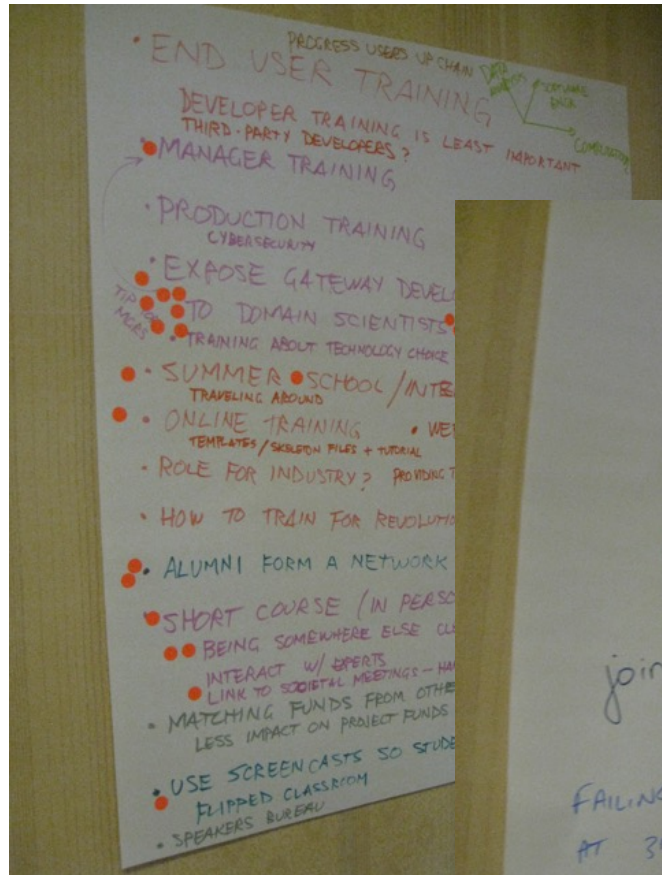 PROGRESS USERS UP CHAIN
• END USER TRAINING
DATA
SOFTWARE
BACK
COMPUTATION
DEVELOPER TRAINING IS LEAST IMPORTANT
THIRD-PARTY DEVELOPERS?
• MANAGER TRAINING
• PRODUCTION TRAINING
CYBERSECURITY
• EXPOSE GATEWAY DEVEL
TO DOMAIN SCIENTISTS
TIP FOR
MGRS
• TRAINING ABOUT TECHNOLOGY CHOICE
• SUMMER SCHOOL/INTE
TRAVELING AROUND
• ONLINE TRAINING • WE
TEMPLATES/SKELETON FILES + TUTORIAL
• ROLE FOR INDUSTRY? PROVIDING T
• HOW TO TRAIN FOR REVOLUTIO
• ALUMNI FORM A NETWORK
SHORT COURSE (IN PERSO
BEING SOMEWHERE ELSE CLE
INTERACT W/ EXPERTS
LINK TO SOCIETAL MEETINGS - HA
• MATCHING FUNDS FROM OTHE
LESS IMPACT ON PROJECT FUNDS
• USE SCREENCASTS SO STUDE
FLIPPED CLASSROOM
• SPEAKERS BUREAU
join
FAILING
AT 3